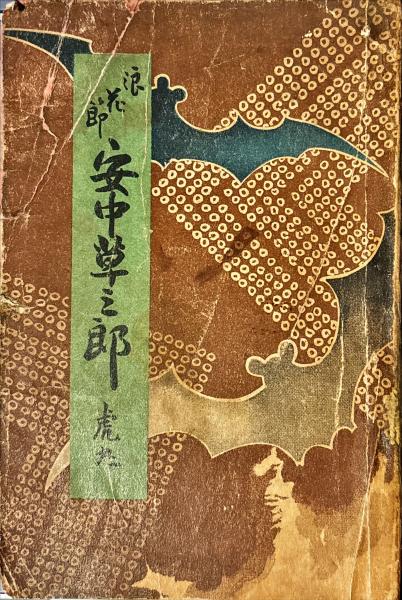 浪花節
安中草三郎
虎丸